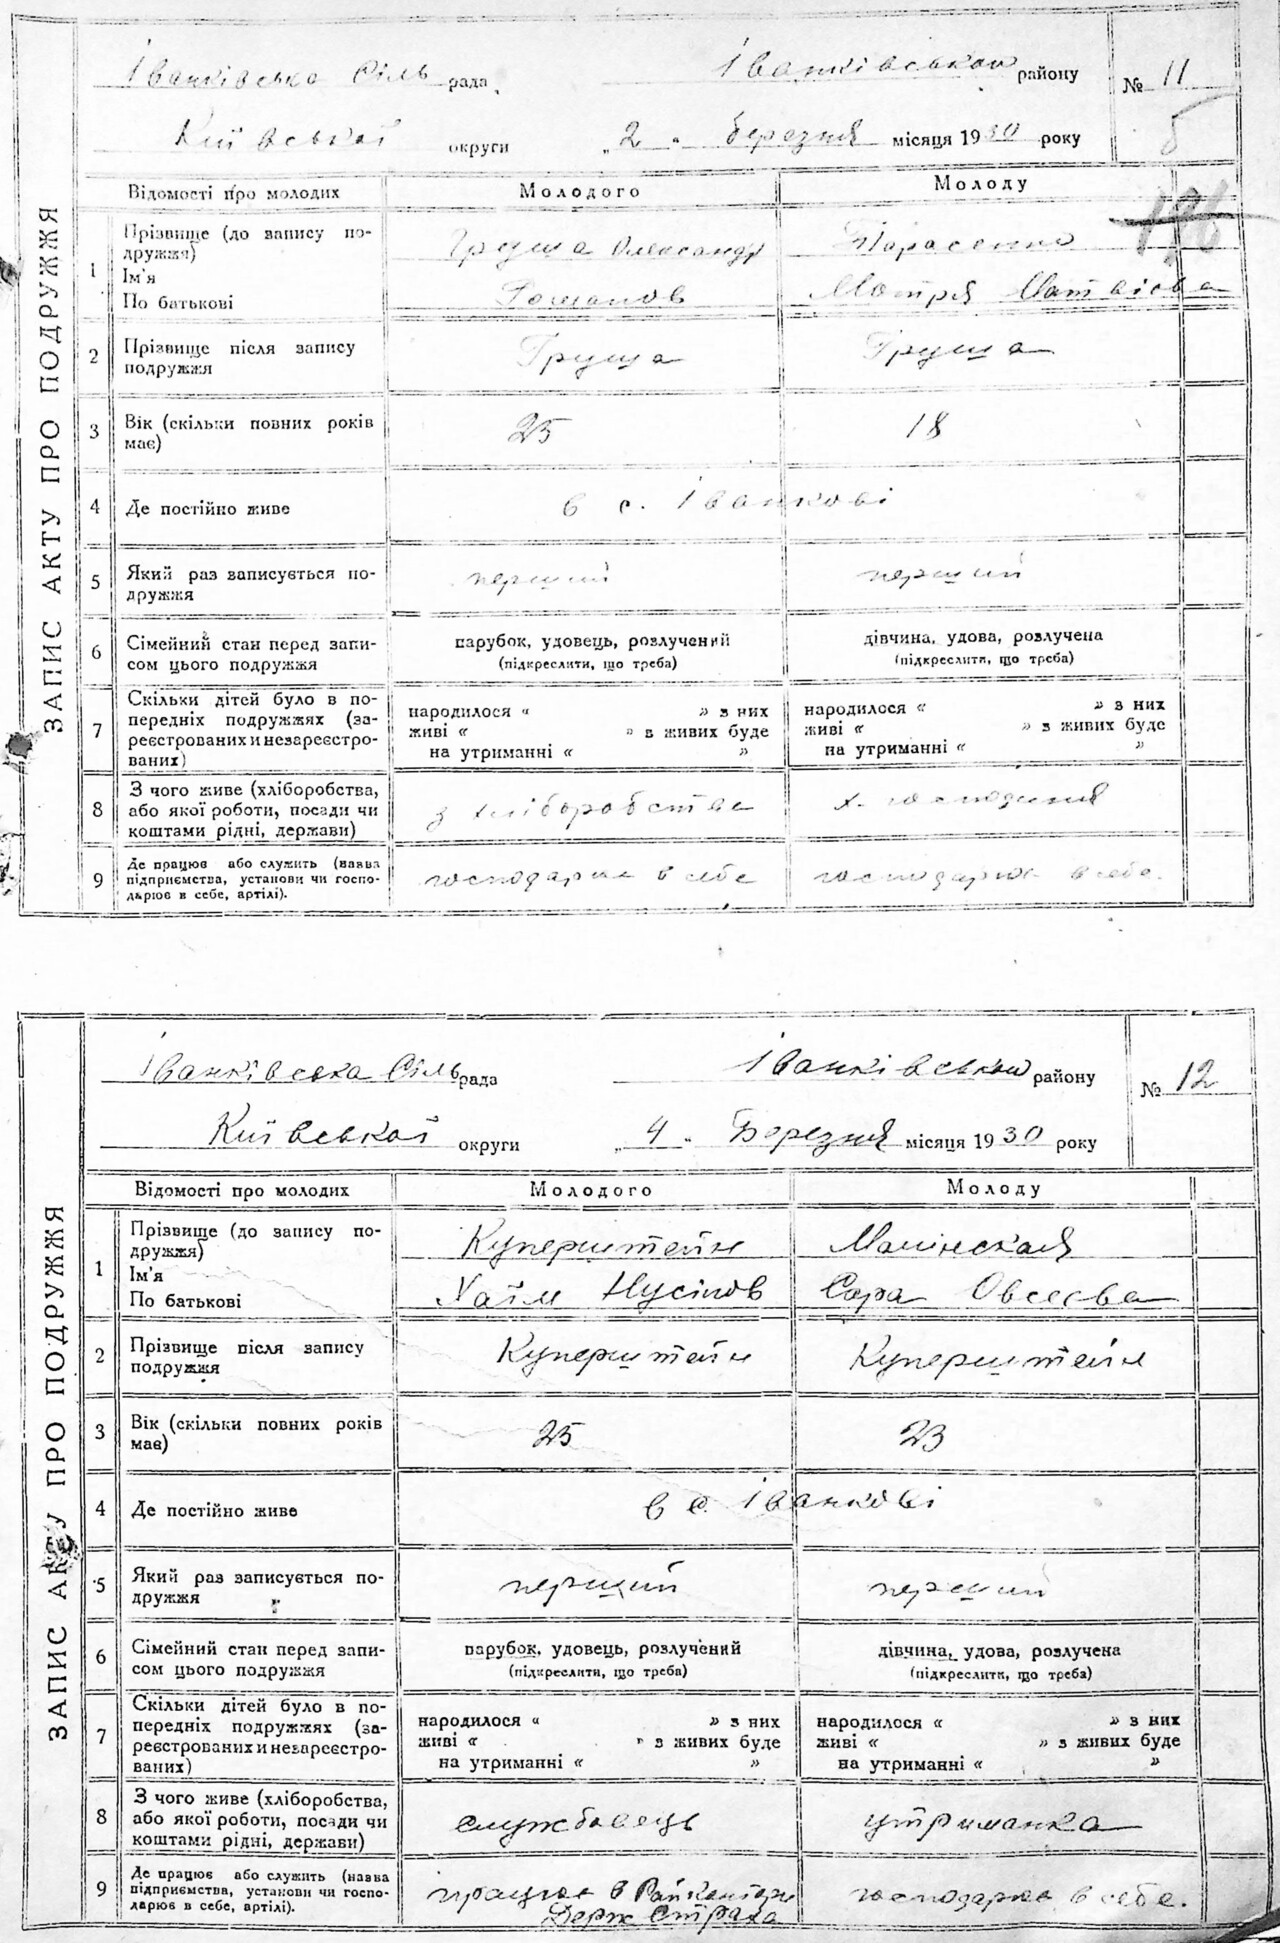 ЗАПИС АКТУ ПРО ПОДРУЖЖЯ
Іванківська Сіль рада Іванківськои району № 11
Київської округи „2" березня місяця 1930 року
Відомості про молодих Молодого Молоду
196
1 Прізвище (до запису по-
дружжя) Груша Олександр Тарасенко
Ім'я
По батькові Романов Мотря Матвіова
2 Прізвище після запису
подружжя Груша Груша
3 Вік (скільки повних років
має) 25 18
4 Де постійно живе в с. Іванкові
5 Який раз записується по-
дружжя перший перший
6 Сімейний стан перед запи-
сом цього подружжя парубок, удовець, розлучений дівчина, удова, розлучена
(підкреслити, що треба) (підкреслити, що треба)
7 Скільки дітей було в по-
передніх подружжях (за-
реєстрованих и незареєстро-
ваних) народилося « » з них народилося « » з них
живі « » з живих буде живі « » з живих буде
на утриманні « » на утриманні « »
8 З чого живе (хліборобства,
або якої роботи, посади чи
коштами рідні, держави) з хліборобства х. господиня
9 Де працює або служить (назва
підприємства, установи чи госпо-
дарює в себе, артілі). господарює в себе господарює в себе.
ЗАПИС АКТУ ПРО ПОДРУЖЖЯ
Іванківська Сіль рада Іванківськои району № 12
Київської округи „4" Березня місяця 1930 року
Відомості про молодих Молодого Молоду
1 Прізвище (до запису по-
дружжя) Куперштейн Малінская
Ім'я
По батькові Хаїм Нусінов Сара Овсеєва
2 Прізвище після запису
подружжя Куперштейн Куперштейн
3 Вік (скільки повних років
має) 25 23
4 Де постійно живе в с. Іванкові
5 Який раз записується по-
дружжя перший перший
6 Сімейний стан перед запи-
сом цього подружжя парубок, удовець, розлучений дівчина, удова, розлучена
(підкреслити, що треба) (підкреслити, що треба)
7 Скільки дітей було в по-
передніх подружжях (за-
реєстрованих и незареєстро-
ваних) народилося « » з них народилося « » з них
живі « » з живих буде живі « » з живих буде
на утриманні « » на утриманні « »
8 З чого живе (хліборобства,
або якої роботи, посади чи
коштами рідні, держави) службовець утриманка
9 Де працює або служить (назва
підприємства, установи чи госпо-
дарює в себе, артілі). працює в Райконтори господарює в себе.
Держ Страха